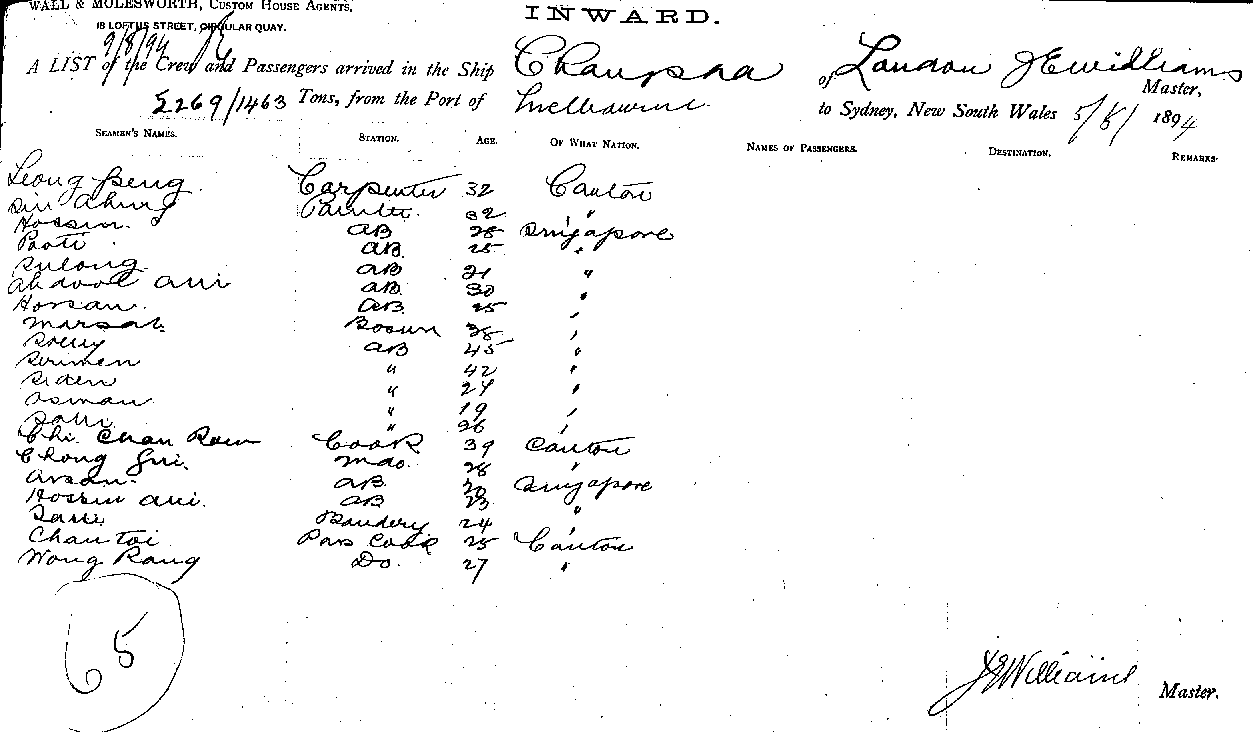 WALL & MOLESWORTH, CUSTOM HOUSE AGENTS,
18 LOFTUS STREET, CIRCULAR QUAY.
INWARD.
9/8/94
A LIST of the Crew and Passengers arrived in the Ship Chaupsha of London J E Williams Master,
2269/1463 Tons, from the Port of Melbourne to Sydney, New South Wales 5/8/ 1894
SEAMEN'S NAMES. STATION. AGE. OF WHAT NATION. NAMES OF PASSENGERS. DESTINATION. REMARKS.
Leong Carpenter 32 Canton
Painter 32 "
Hossin. AB 28 Singapore
AB. 25 "
Sulong AB 21 "
AB. 30 "
Hassan. AB. 25 "
Marsat. Bosun 38 "
AB 45 "
" 42 "
Siden " 24 "
Osman " 19 "
" 26 "
Chi Chan Cook 39 Canton
Chong mdo. 28 "
AB 20 Singapore
Hossin AB 23 "
24 "
Chan Toi Pass Cook 25 Canton
Wong Do. 27 "
65
J E Williams Master.